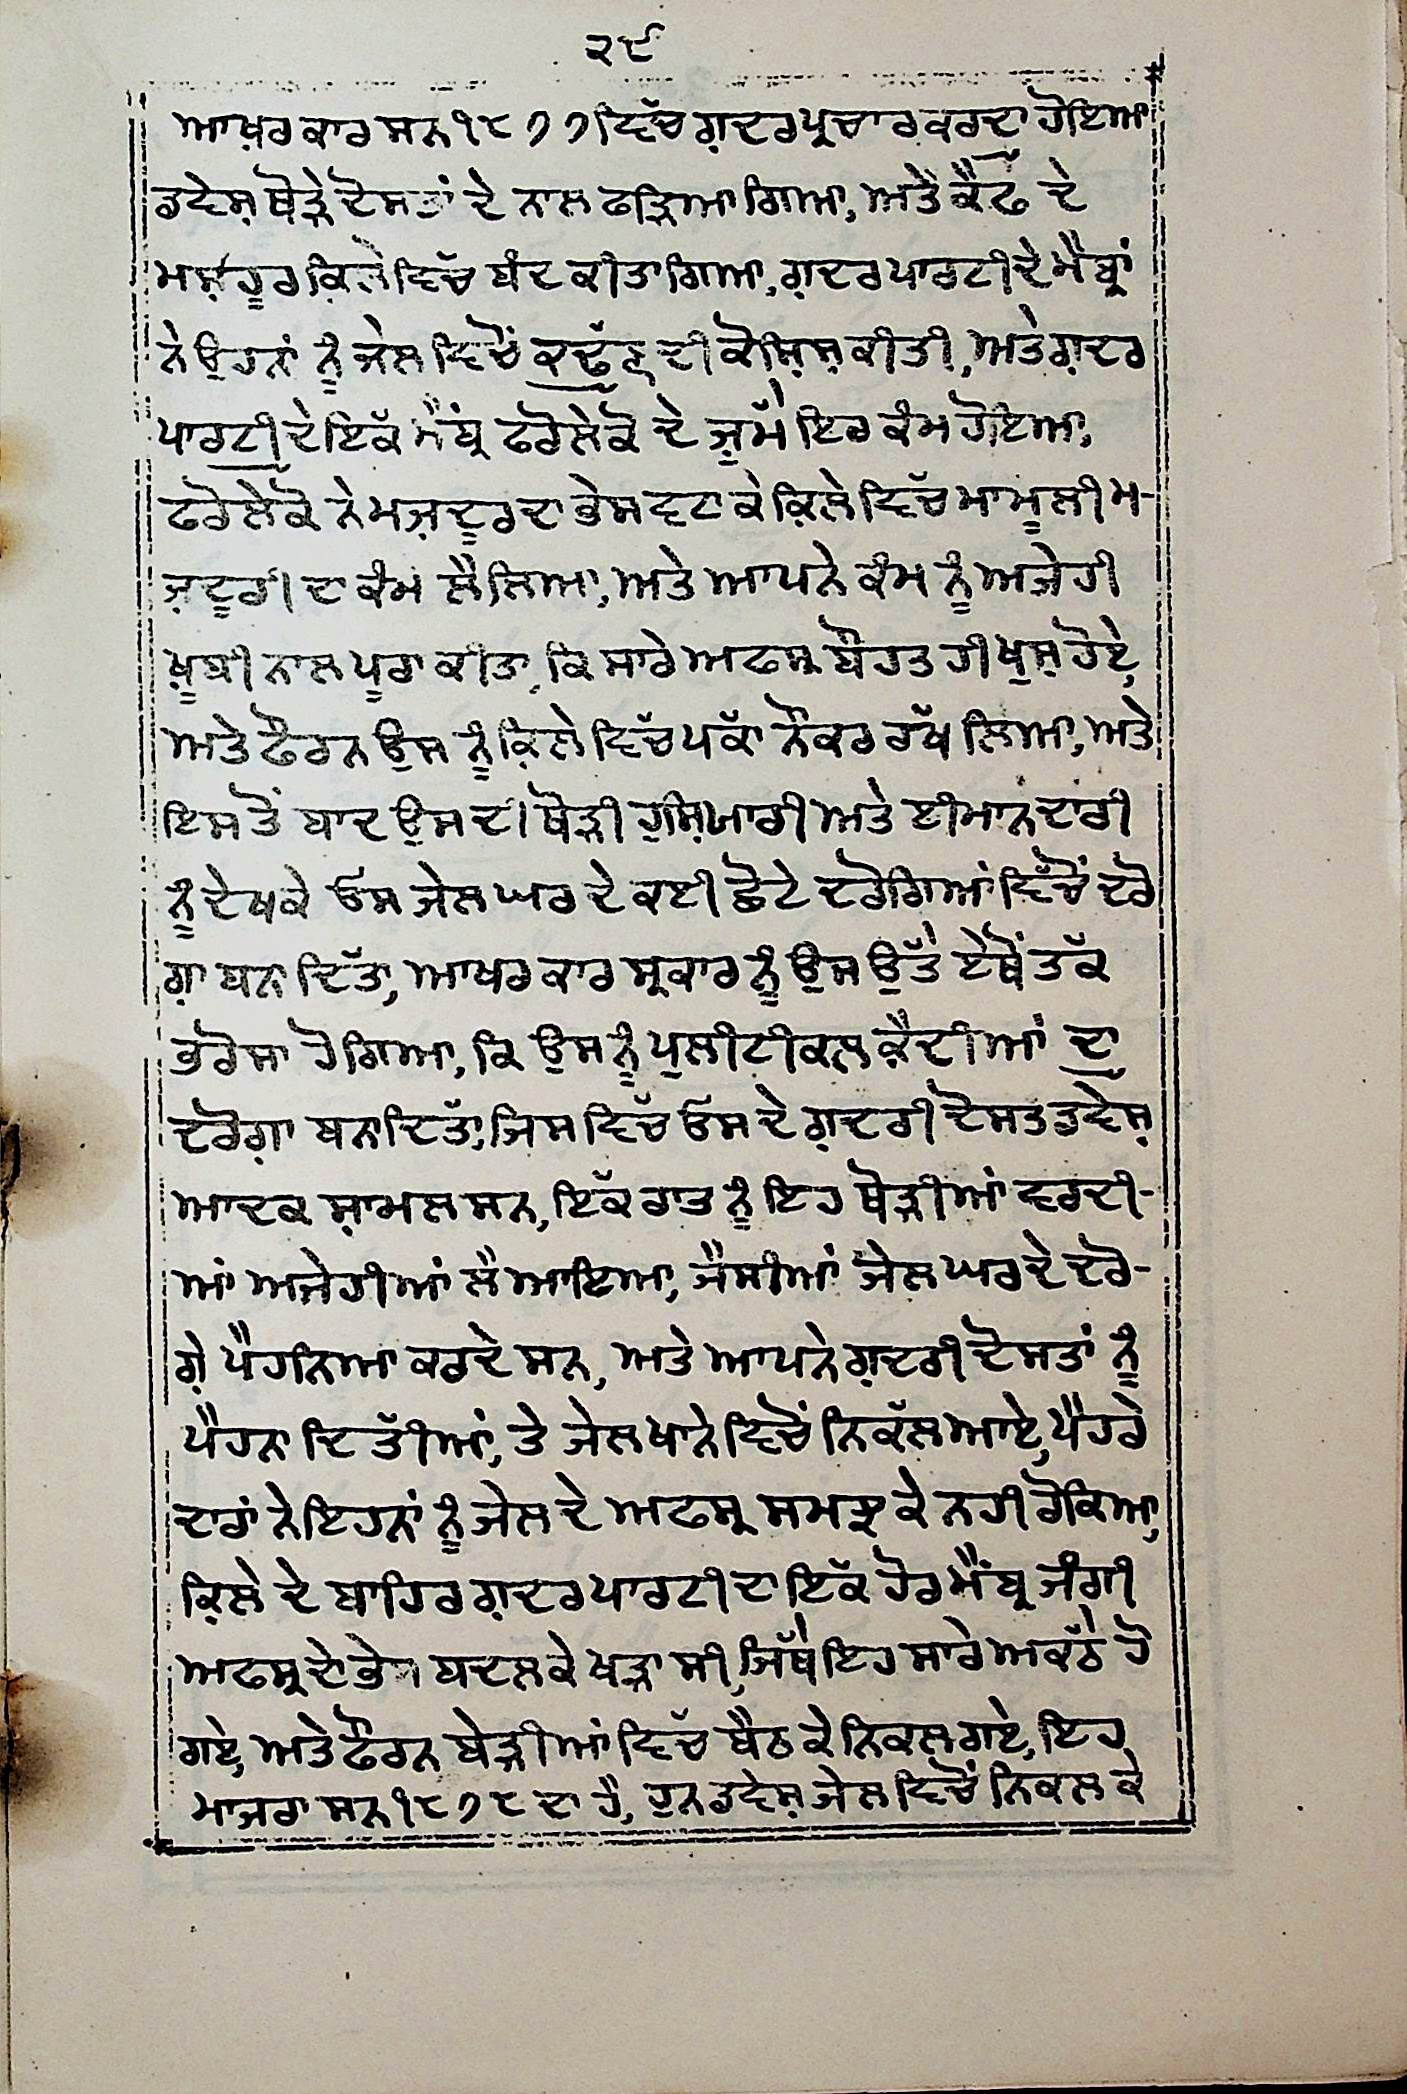 ੨੯
ਆਖ਼ਰਕਾਰ ਸਨ ੧੮੭੭ ਵਿੱਚ ਗ਼ਦਰ ਪ੍ਰਚਾਰ ਕਰਦਾ ਹੋਇਆ
ਡਵੇਸ਼ ਥੋੜ੍ਹੇ ਦੋਸਤਾਂ ਦੇ ਨਾਲ ਫੜਿਆ ਗਿਆ, ਅਤੇ ਕੈਫ ਦੇ
ਮਸ਼ਹੂਰ ਕਿਲੇ ਵਿੱਚ ਬੰਦ ਕੀਤਾ ਗਿਆ, ਗ਼ਦਰ ਪਾਰਟੀ ਦੇ ਮੈਂਬ੍ਰਾਂ
ਨੇ ਉਹਨਾਂ ਨੂੰ ਜੇਲ ਵਿਚੋਂ ਕਢੱਣ ਦੀ ਕੋਸ਼ਿਸ਼ ਕੀਤੀ, ਅਤੇ ਗ਼ਦਰ
ਪਾਰਟੀ ਦੇ ਇਕੱ ਮੈਂਬ੍ਰ ਫਰੋਲੇਕੋ ਦੇ ਜ਼ੁਮੇੱ ਇਹ ਕੰਮ ਹੋਇਆ,
ਫਰੋਲੇਕੋ ਨੇ ਮਜ਼ਦੂਰ ਦਾ ਭੇਸ ਵਟਾ ਕੇ ਕਿਲੇ ਵਿੱਚ ਮਾਮੂਲੀ ਮ-
ਜ਼ਦੂਰੀ ਦਾ ਕੰਮ ਲੈ ਲਿਆ, ਅਤੇ ਆਪਨੇ ਕੰਮ ਨੂੰ ਅਜੇਹੀ
ਖ਼ੂਬੀ ਨਾਲ ਪੂਰਾ ਕੀਤਾ, ਕਿ ਸਾਰੇ ਅਫਸ੍ਰ ਬੌਹਤ ਹੀ ਖੁਸ਼ ਹੋਏ,
ਅਤੇ ਫੌਰਨ ਉਸ ਨੂੰ ਕਿਲੇ ਵਿੱਚ ਪਕੱਾ ਨੌਕਰ ਰੱਖ ਲਿਆ, ਅਤੇ
ਇਸ ਤੋਂ ਬਾਦ ਉਸ ਦੀ ਥੋੜ੍ਹੀ ਹੁਸ਼ਿਯਾਰੀ ਅਤੇ ਈਮਾਨਦਾਰੀ
ਨੂੰ ਦੇਖਕੇ ਓਸ ਜੇਲ ਘਰ ਦੇ ਕਈ ਛੋਟੇ ਦਰੋਗਿਆਂ ਵਿੱਚੋਂ ਦਰੋ
ਗ਼ਾ ਬਨਾ ਦਿੱਤਾ, ਆਖਰਕਾਰ ਸ੍ਰਕਾਰ ਨੂੰ ਉਸ ਉੱਤੇ ਏਥੋਂ ਤੱਕ
ਭਰੋਸਾ ਹੋ ਗਿਆ, ਕਿ ਉਸ ਨੂੰ ਪੁਲੀਟੀਕਲ ਕੈਦੀਆਂ ਦਾ
ਦਰੋਗ਼ਾ ਬਨਾ ਦਿਤੱਾ, ਜਿਸ ਵਿੱਚ ਓਸ ਦੇ ਗ਼ਦਰੀ ਦੋਸਤ ਡਵੇਸ਼
ਆਦਕ ਸ਼ਾਮਲ ਸਨ, ਇਕੱ ਰਾਤ ਨੂੰ ਇਹ ਥੋੜ੍ਹੀਆਂ ਵਰਦੀ-
ਆਂ ਅਜੇਹੀਆਂ ਲੈ ਆਇਆ, ਜੈਸੀਆਂ ਜੇਲ ਘਰ ਦੇ ਦਰੋ-
ਗ਼ੇ ਪੈਹਨਿਆ ਕਰਦੇ ਸਨ, ਅਤੇ ਆਪਨੇ ਗ਼ਦਰੀ ਦੋਸਤਾਂ ਨੂੰ
ਪੈਹਨਾ ਦਿਤੱੀਆਂ, ਤੇ ਜੇਲਖਾਨੇ ਵਿਚੋਂ ਨਿਕੱਲ ਆਏ, ਪੈਹਰੇ
ਦਾਰਾਂ ਨੇ ਇਹਨਾਂ ਨੂੰ ਜੇਲ ਦੇ ਅਫਸ੍ਰ ਸਮਝ ਕੇ ਨਹੀ ਰੋਕਿਆ,
ਕਿਲੇ ਦੇ ਬਾਹਿਰ ਗ਼ਦਰ ਪਾਰਟੀ ਦਾ ਇਕੱ ਹੋਰ ਮੈਂਬ੍ਰ ਜੰਗੀ
ਅਫਸ੍ਰ ਦੇ ਭੇਸ ਬਦਲ ਕੇ ਖੜਾ ਸੀ, ਜਿੱਥੇ ਇਹ ਸਾਰੇ ਅਕੱਠੇ ਹੋ
ਗਏ, ਅਤੇ ਫੌਰਨ ਬੇੜੀਆਂ ਵਿੱਚ ਬੈਠ ਕੇ ਨਿਕਲ ਗਏ, ਇਹ
ਮਾਜਰਾ ਸਨ ੧੮੭੮ ਦਾ ਹੈ, ਹੁਨ ਡਵੇਸ਼ ਜੇਲ ਵਿਚੋਂ ਨਿਕਲ ਕੇ